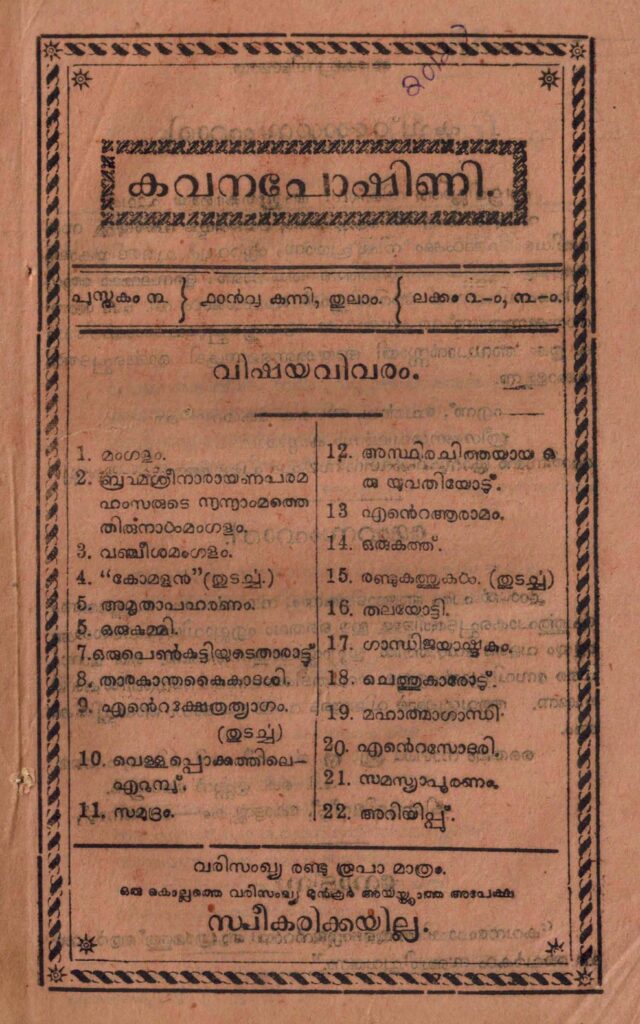 കവനപോഷിണി.
പുസ്തകം ൩. } കന്നി, തുലാം. { ലക്കം ൨-ം, ൩-ം.
വിഷയവിവരം.
1. മംഗളം.
2. ബ്രഹ്മശ്രീനാരായണപരമ
ഹംസരുടെ
തിരുനാൾമംഗളം.
3. വഞ്ചീശമംഗളം.
4. “കോമളൻ”(തുടൎച്ച.)
5. അമൃതാപഹരണം.
5. ഒരുകുമ്മി.
7.ഒരുപെൺകുട്ടിയുടെതാരാട്ട്
8. താരകാന്തകൈകാദശി.
9. എന്റെക്ഷേത്രത്യാഗം.
(തുടൎച്ച)
10. വെള്ളപ്പൊക്കത്തിലെ-
എറുമ്പ്.
11. സമുദ്രം.
12. അസ്ഥിരചിത്തയായ ഒ
രു യുവതിയോട്.
13 എന്റെആരാമം.
14. ഒരുകത്ത്.
15. രണ്ടുകത്തുകൾ. (തുടൎച്ച)
16. തലയോട്ടി.
17. ഗാന്ധിജയാഷ്ടകം.
18. ചെത്തുകാരോട്.
19. മഹാത്മാഗാന്ധി.
20. എന്റെസോദരി.
21. സമസ്യാപൂരണം.
22. അറിയിപ്പ്.
വരിസംഖ്യ രണ്ടു രൂപാ മാത്രം.
ഒരു കൊല്ലത്തെ വരിസംഖ്യ മുൻകൂർ അയയ്ക്കാത്ത അപേക്ഷ
സ്വീകരിക്കയില്ല.